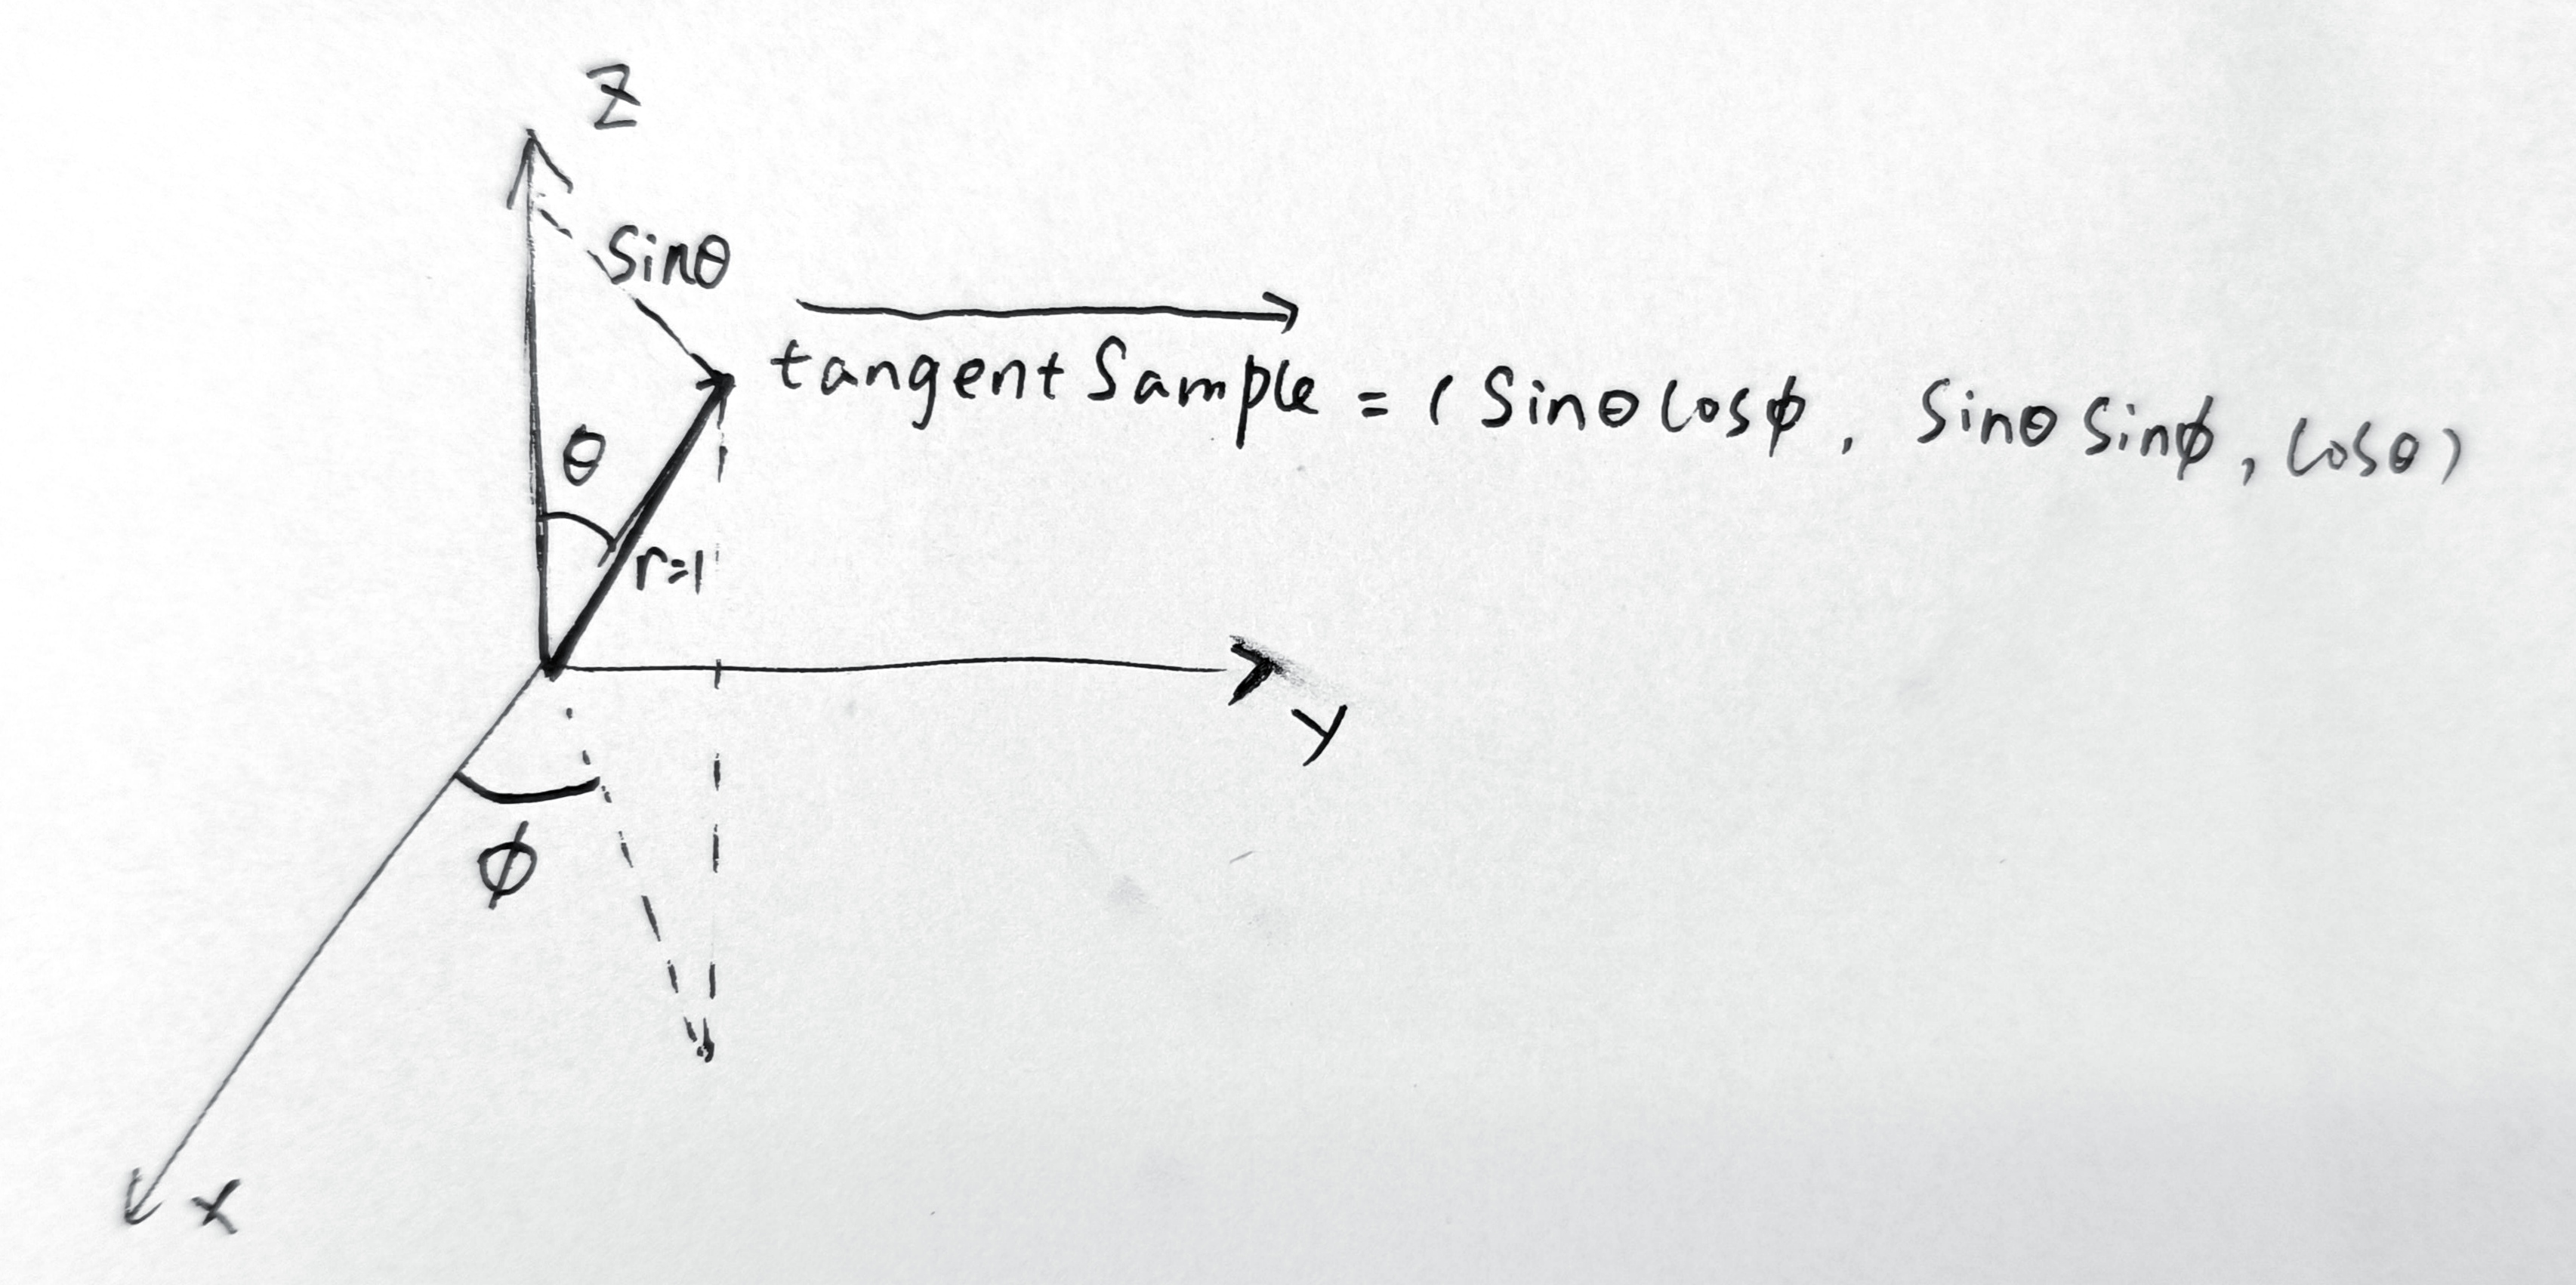 Z
sinθ
tangentSample = (sinθcosϕ, sinθsinϕ, cosθ)
θ
r=1
Y
ϕ
X